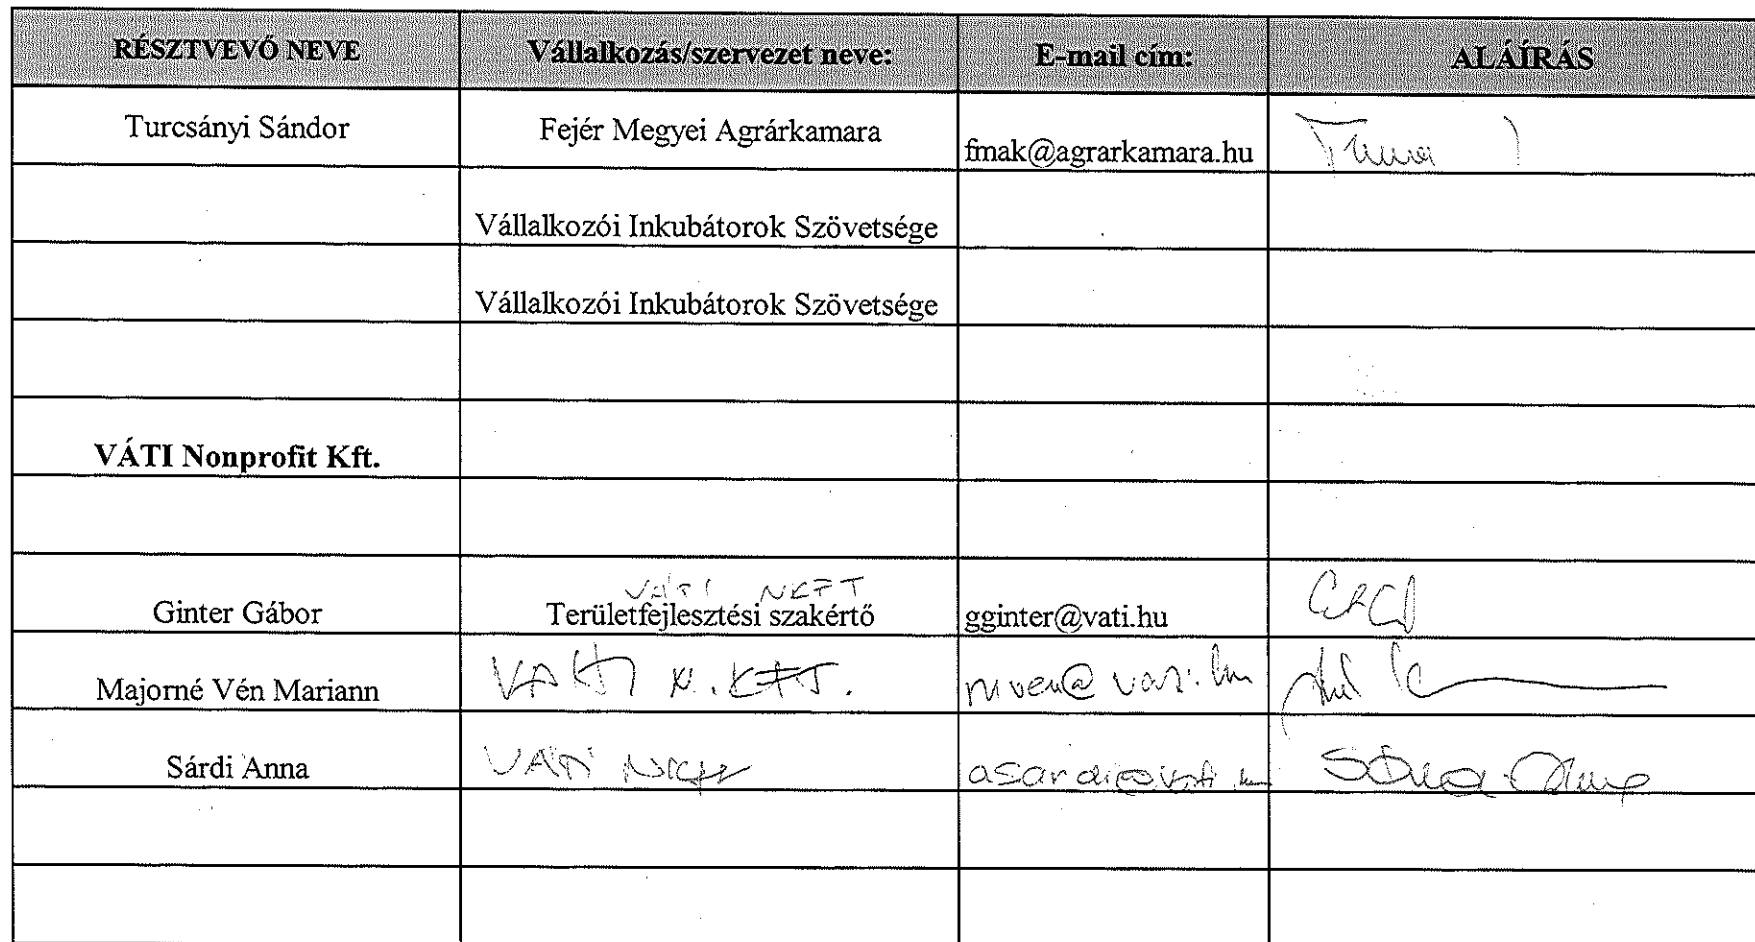 RÉSZTVEVŐ NEVE Vállalkozás/szervezet neve: E-mail cím: ALÁÍRÁS
Turcsányi Sándor Fejér Megyei Agrárkamara fmak@agrarkamara.hu
Vállalkozói Inkubátorok Szövetsége
Vállalkozói Inkubátorok Szövetsége
VÁTI Nonprofit Kft.
VÁTI NKFT
Ginter Gábor Területfejlesztési szakértő gginter@vati.hu
Majorné Vén Mariann VÁTI N.KFT. mven@vati.hu
Sárdi Anna VÁTI NKft asardi@vati.hu Sárdi Anna